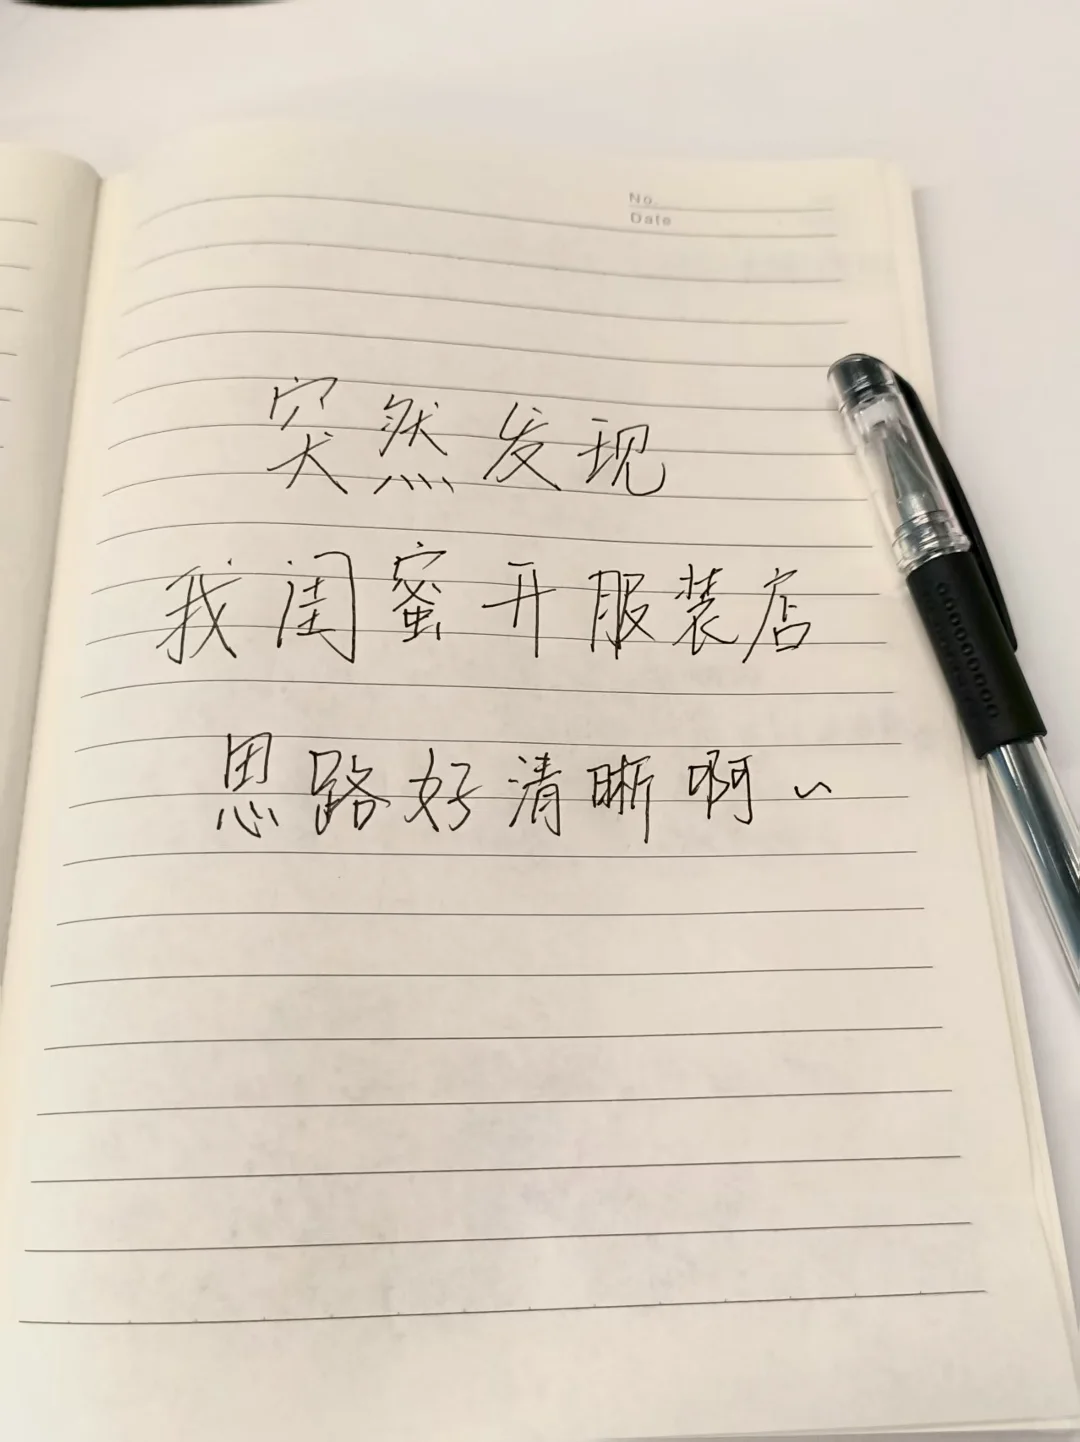 No.
Date
突然发现
我闺蜜开服装店
思路好清晰啊~